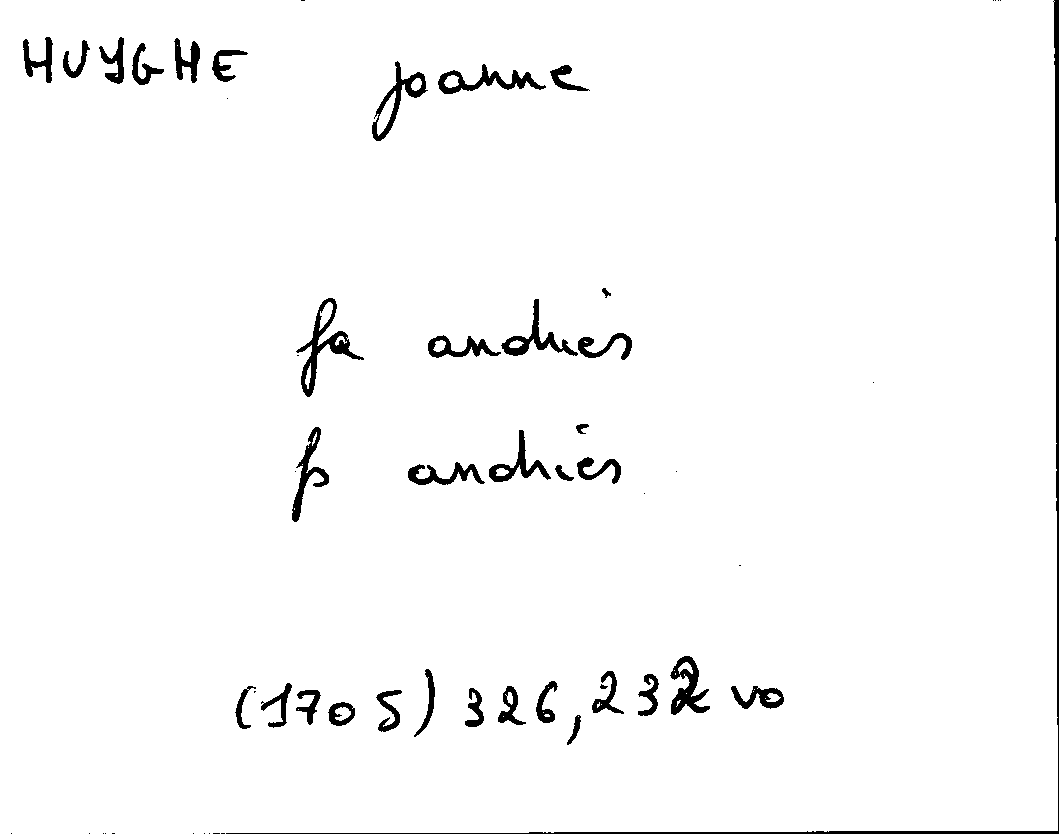 HUYGHE joanne
fa andries
fs andries
(1705) 326,232 vo